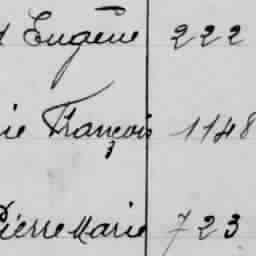 Eugène 222
ie François 1148
Pierre Marie 723